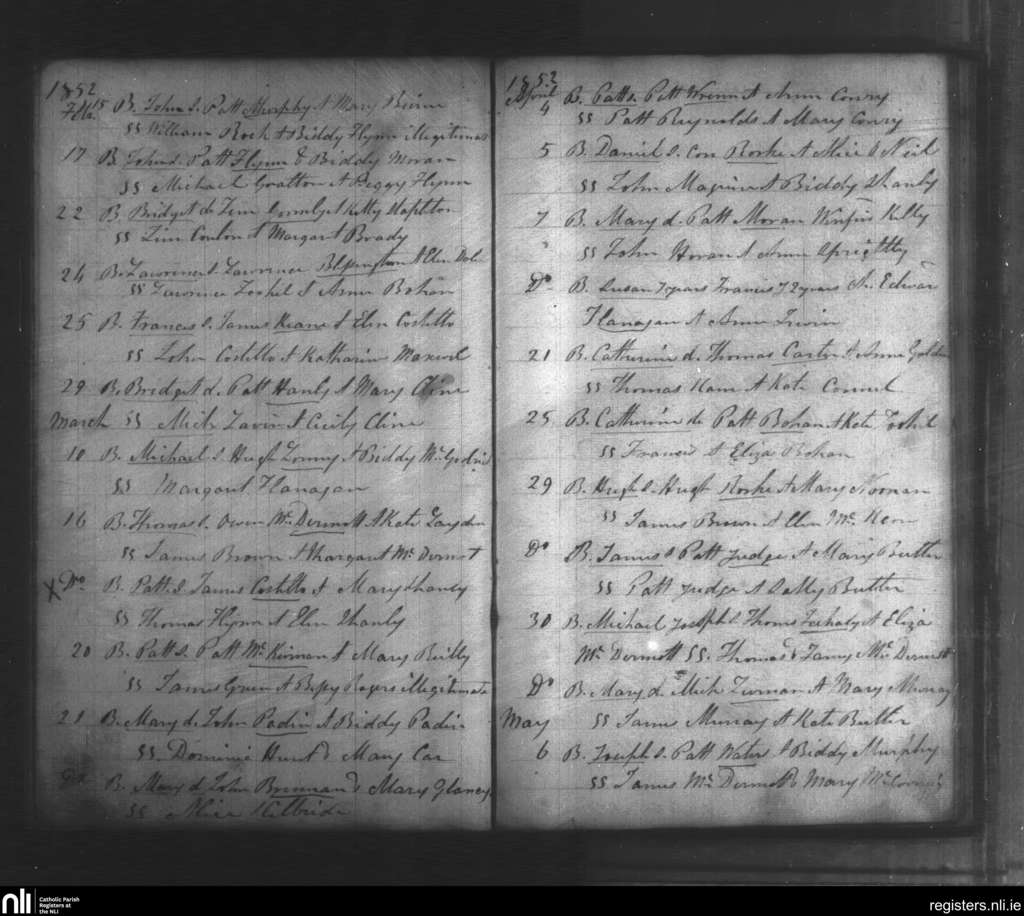 1852
Feb. 15 B. John s. Patt Murphy & Mary Beirne
SS William Rock & Biddy Flynn illegitimas
17 B John s. Patt Flynn & Biddy Moran
SS Michael Gratton & Peggy Flynn
22 B. Bridget d. & Kitty
SS Conlon & Margaret Brady
24 B. Lawrence s. Lawrence & Elen
SS Lawrence & Anne Bohan
25 B. Francis s. James Keane & Elen Costello
SS John Costello & Katharine Maxwel
29 B. Bridget d. Patt Hanly & Mary Cline
March SS Mich Lavin & Cicily Cline
10 B. Michael s. Hugh & Biddy
SS Margaret Flanagan
16 B. Thomas s. Owen Mc Dermott & Kate Laydon
SS James Brown & Margaret Mc Dermot
X Do. B. Patt s. James Costello & Mary Shanly
SS Thomas Flynn & Elen Shanly
20 B. Patt s. Patt Mc Kiernan & Mary Reilly
SS James Green & Bessy Rogers illegitimate
21 B. Mary d. John Padin & Biddy Padin
SS. Dominic Hunt & Mary Cox
B. Mary d John Brennan & Mary Glancy
SS Alice Kilbride
1852
April
4 B. Patt s. Patt Wrenn & Anne Conry
SS Patt Reynolds & Mary Conry
5 B. Daniel s. Con Rorke & Alice O Neil
SS John Maguire & Biddy Shanly
7 B. Mary d. Patt Moran Winifred Kelly
SS John Horan & Anne
Do. B. Susan 7 years Francis 72years Edwar
Flanagan & Anne Irwin
21 B. Catherine d. Thomas Carter & Anne Golden
SS Thomas & Kate
25 B. Catherine d. Patt Bohan & Kate
SS Francis & Eliza Bohan
29 B. Hugh s. Hugh Rorke & Mary Noonan
SS James Brown & Elen Mc Keon
Do B. James s Patt Judge & Mary Butler
SS Patt Judge & Sally Butler
30 B. Michael Joseph s. Thomas & Eliza
Mc Dermott SS. Thomas & Fanny Mc Dermott
Do B. Mary d. Mich & Mary Murray
May SS James Murray & Kate Butler
6 B. Joseph s. Patt Water & Biddy Murphy
SS James Mc Dermott & Mary
nli Catholic Parish
Registers at
the NLI
registers.nli.ie